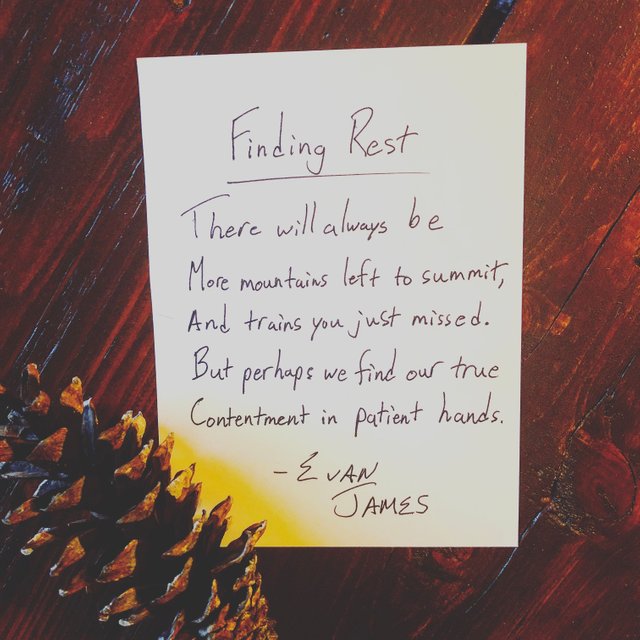 Finding Rest
There will always be
More mountains left to summit,
And trains you just missed.
But perhaps we find our true
Contentment in patient hands.
- EVAN
JAMES